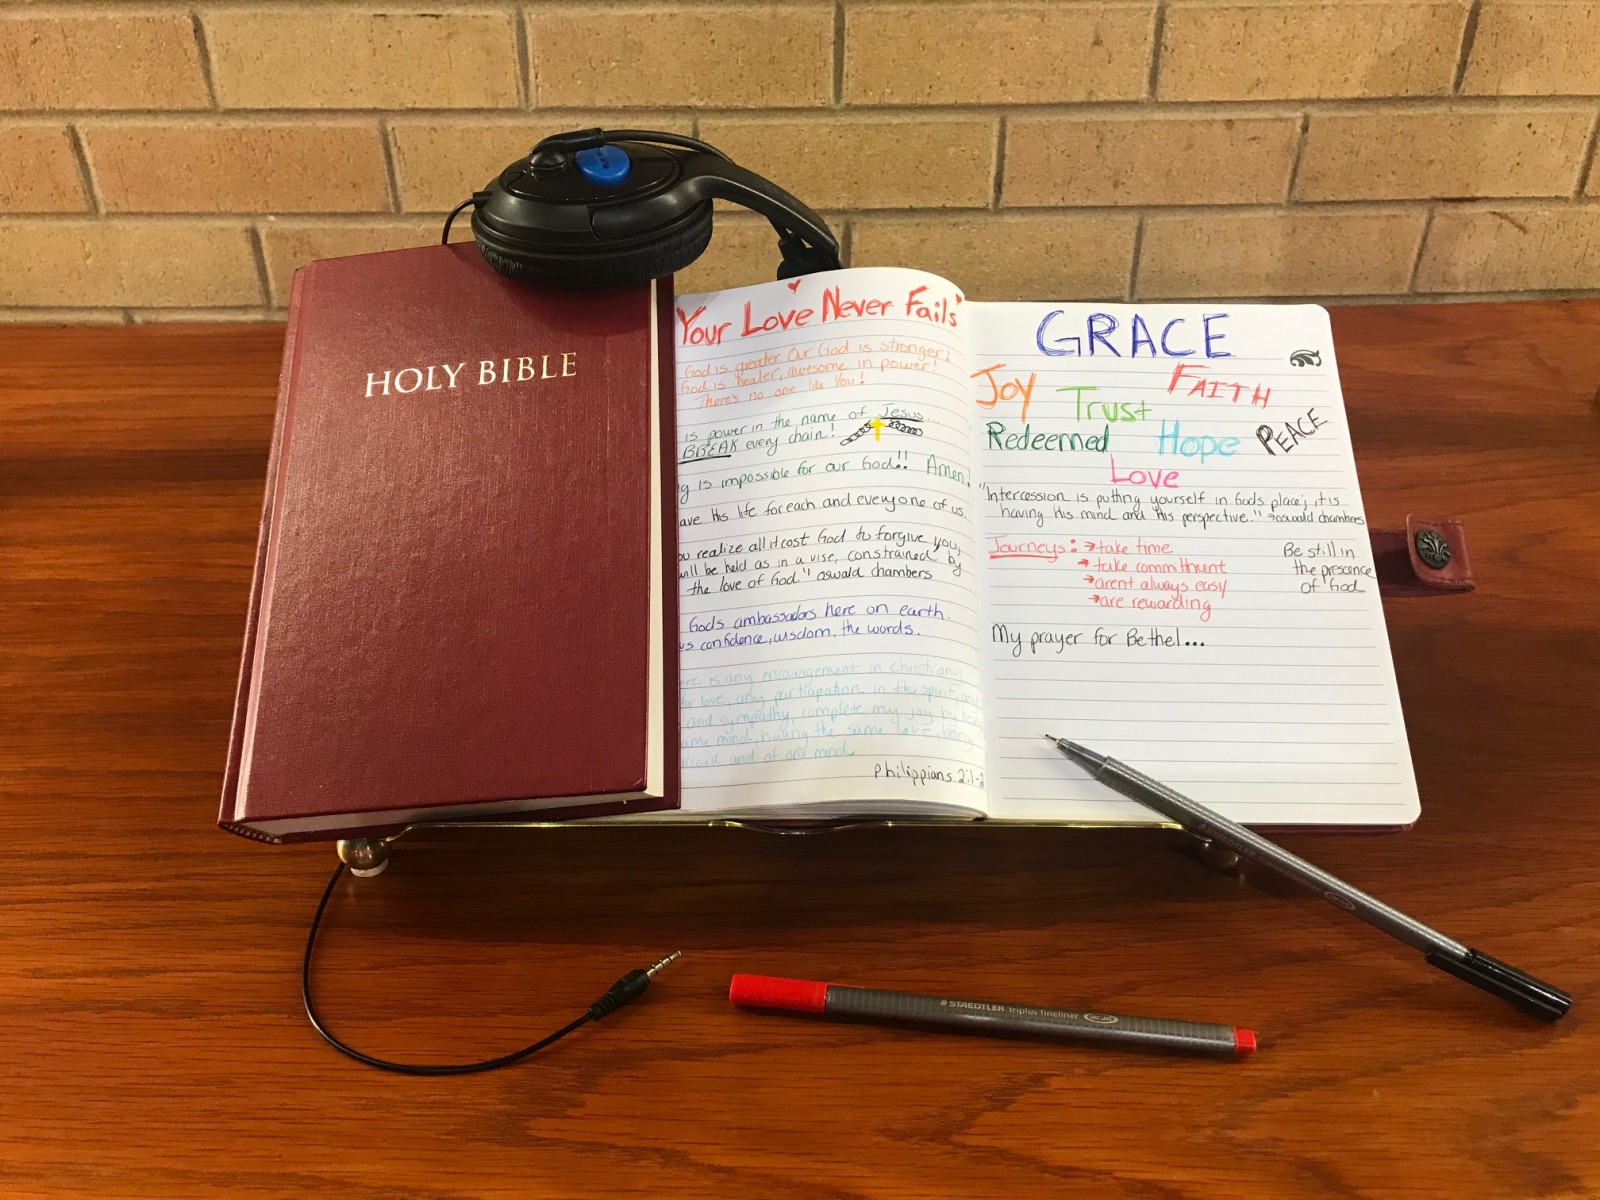 HOLY BIBLE
Your Love Never Fails
God is greater Our God is stronger!
God is healer, awesome in power!
There's no one like You!
is power in the name of Jesus...
BREAK every chain!
g is impossible for our God!! Amen!
ave His life for each and everyone of us.
ou realize all it cost God to forgive you,
will be held as in a vise, constrained by
the love of God." oswald chambers
Gods ambassadors here on earth.
us confidence, wisdom, the words.
ere is any encouragement in Christ, any
love, any participation in the spirit, any
and sympathy, complete my joy by
ame mind, having the same love, being
accord and of one mind.
Philippians 2:1-2
GRACE
Joy Trust FAITH
Redeemed Hope PEACE
Love
"Intercession is putting yourself in Gods place; it is
having His mind and His perspective." oswald chambers
Journeys: → take time
→ take committment
→ arent always easy
→ are rewarding
Be still in
the prescence
of God
My prayer for Bethel...
STAEDTLER triplus fineliner